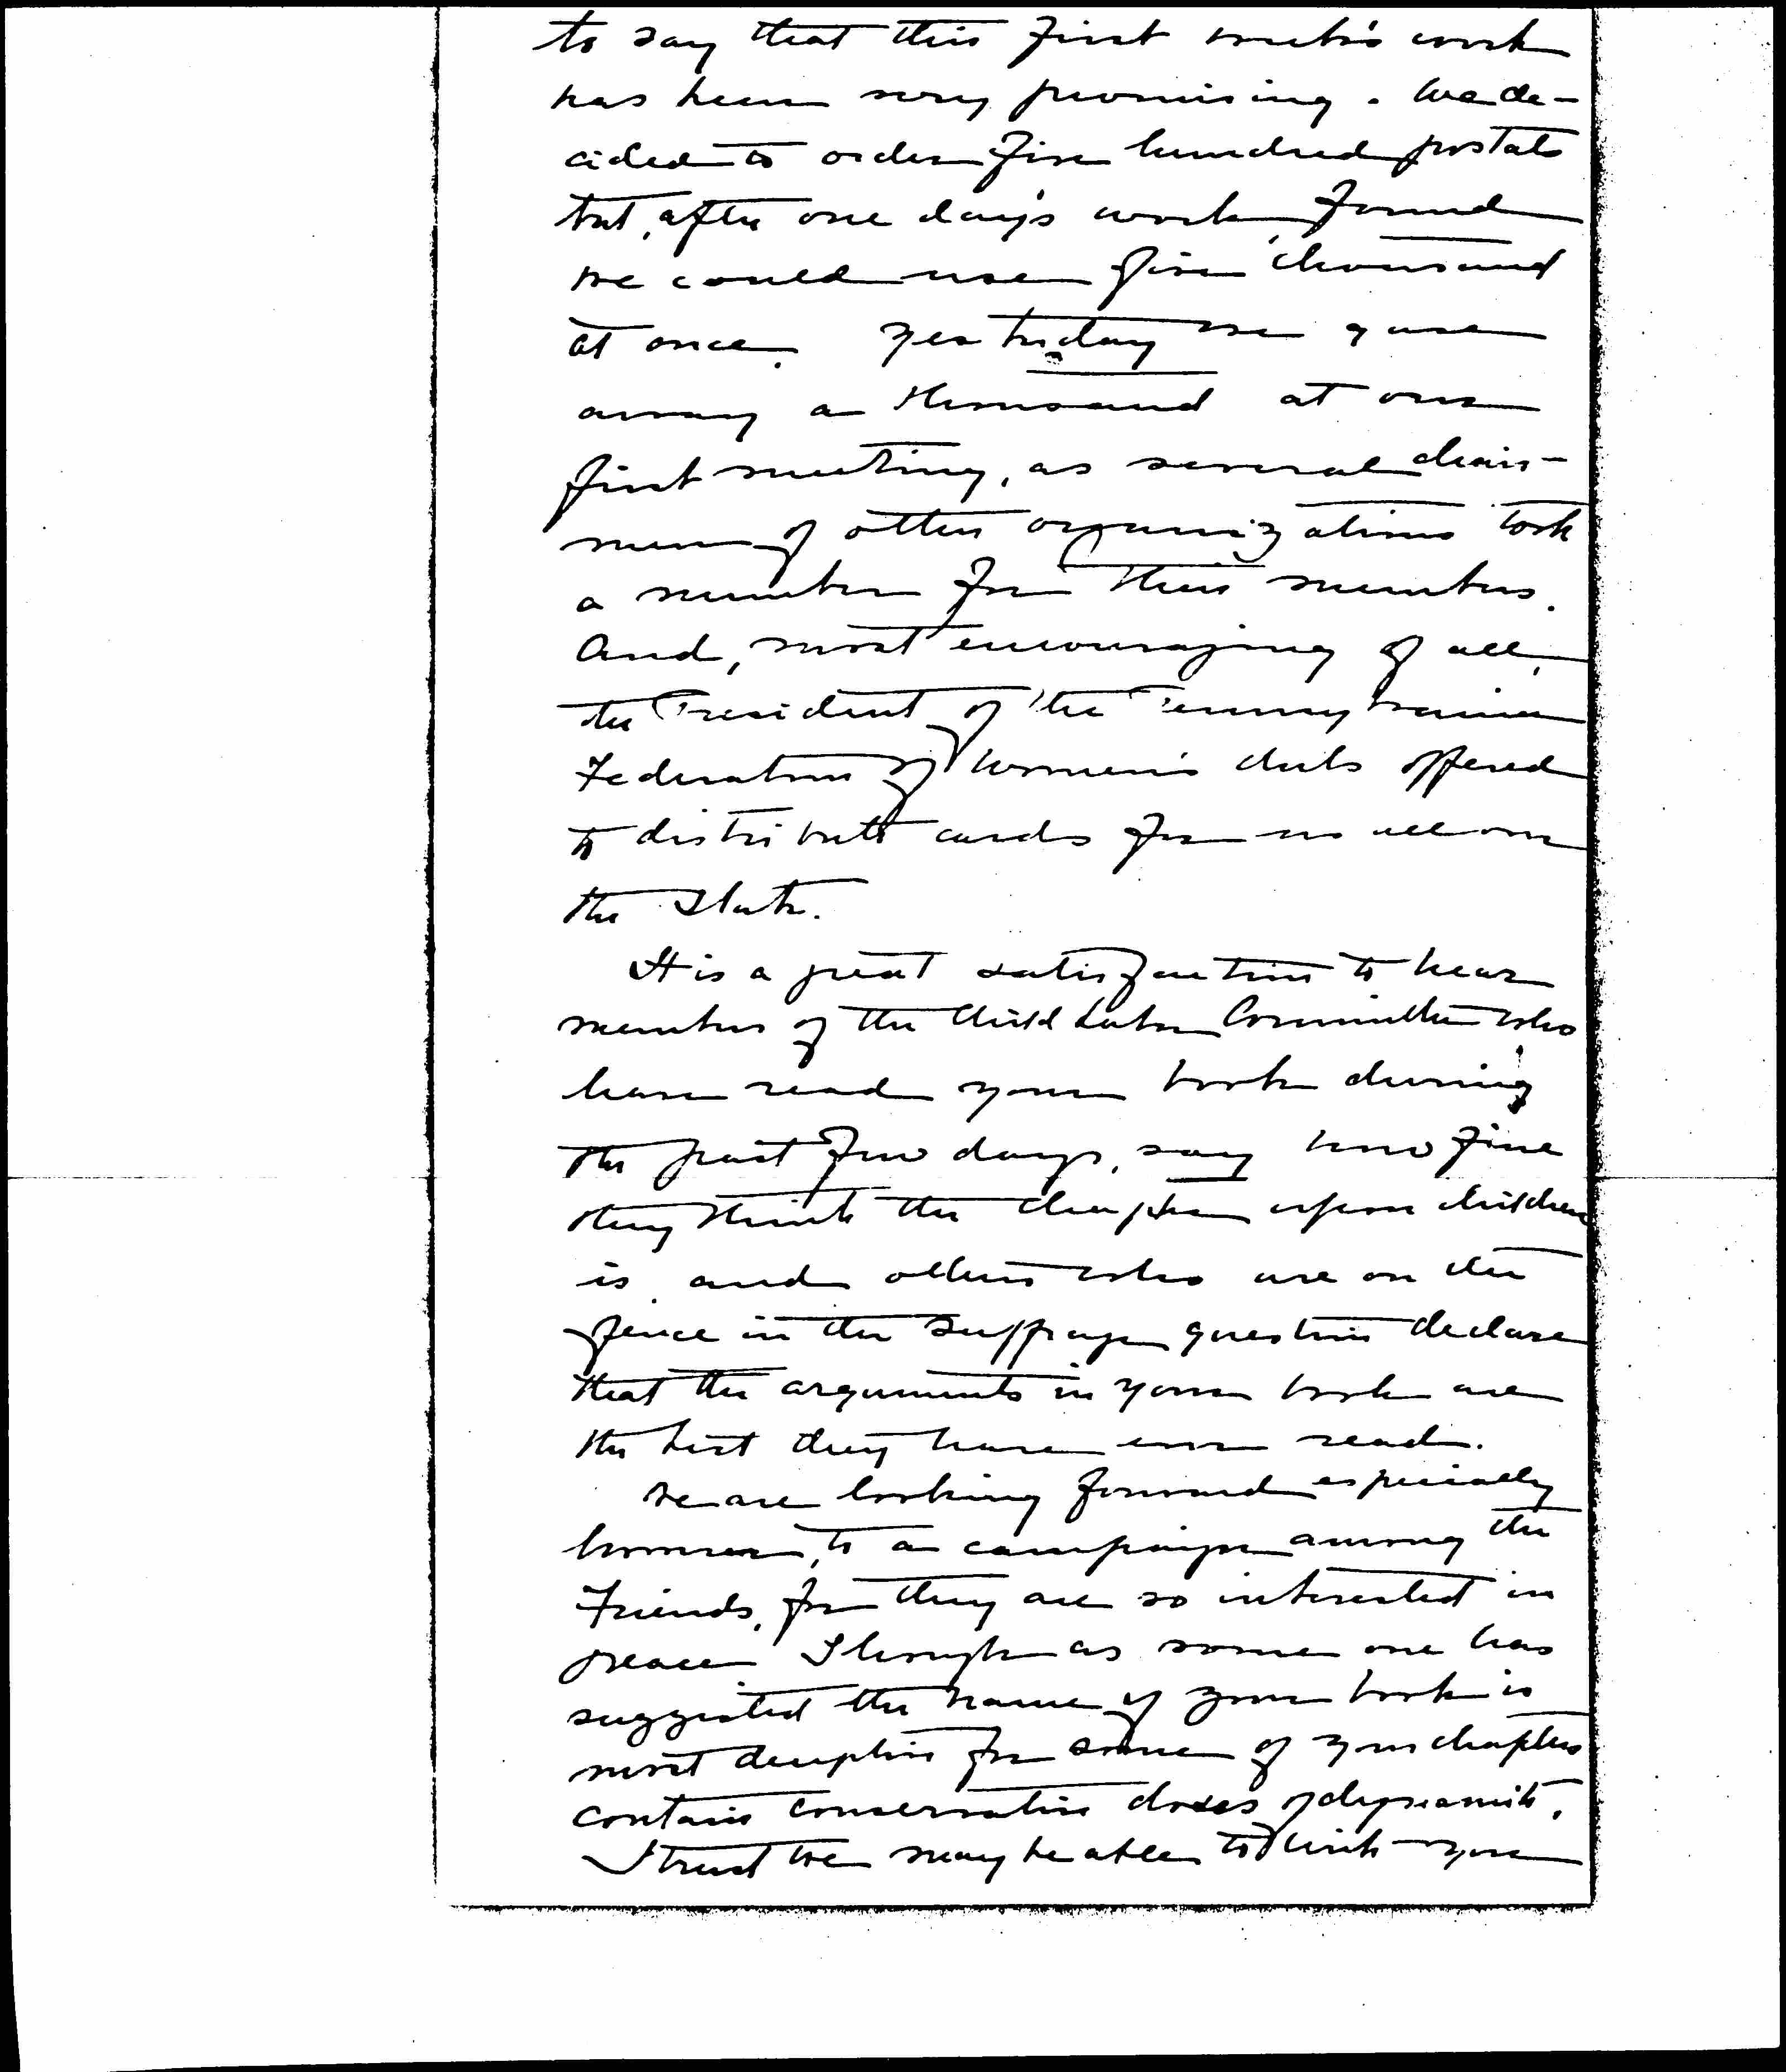 to say that this first week's work
has been very promising. We de-
cided to order five hundred postals
but, after one day's work, found
we could use five thousand
at once. Yesterday we gave
away a thousand at our
first meeting, as several chair-
men of other organizations took
a number for their members.
And, most encouraging of all,
the President of the Pennsylvania
Federation of Women's Clubs offered
to distribute cards for us all over
the State.
It is a great satisfaction to hear
members of the Child Labor Committee who
have read your book during
the past few days, say how fine
they think the chapter upon children
is and others who are on the
fence in the Suffrage question declare
that the arguments in your book are
the best they have ever read.
We are looking forward especially
however, to a campaign among the
Friends, for they are so interested in
peace Though as some one has
suggested the name of your book is
most deceptive for some of your chapters
contain conservative doses of dynamite.
I trust we may be able to with you